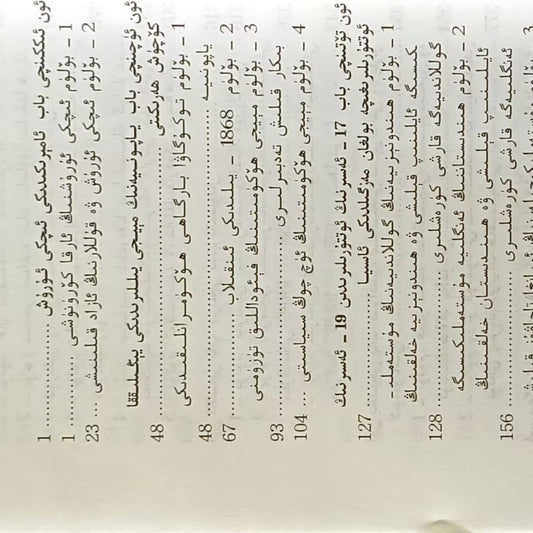 ئون ئىككىنچى باب ئامېرىكىدىكى ئىچكى ئۇرۇش ........ 1
1 - بۆلۈم ئىچكى ئۇرۇشنىڭ ئارقا كۆرۈنۈشى ........ 1
2 - بۆلۈم ئىچكى ئۇرۇش ۋە قۇللارنىڭ ئازاد قىلىنىشى ... 23
ئون ئۈچىنچى باب ياپونىيىنىڭ مېيجى يىللىرىدىكى يېڭىلىققا
كۆچۈش ھەرىكىتى ........ 48
1 - بۆلۈم توكۇگاۋا بارگاھى ھۆكۈمرانلىقىدىكى
ياپونىيە ........ 48
2 - بۆلۈم 1868 - يىلىدىكى ئىنقىلاب ........ 67
3 - بۆلۈم مېيجى ھۆكۈمىتىنىڭ فېئوداللىق تۈزۈمنى
بىكار قىلىش تەدبىرلىرى ........ 93
4 - بۆلۈم مېيجى ھۆكۈمىتىنىڭ ئۈچ چوڭ سىياسىتى ... 104
ئون تۆتىنچى باب 17 - ئەسىرنىڭ ئوتتۇرىلىرىدىن 19 - ئەسىرنىڭ
ئوتتۇرىلىرىغىچە بولغان مەزگىلدىكى ئاسىيا ........ 127
1 - بۆلۈم ھىندونېزىيەنىڭ گوللاندىيەنىڭ مۇستەملى-
كىسىگە ئايلىنىپ قىلىشى ۋە ھىندونېزىيە خەلقىنىڭ
گوللاندىيەگە قارشى كۈرەشلىرى ........ 128
2 - بۆلۈم ھىندىستاننىڭ ئەنگلىيە مۇستەملىكىسىگە
ئايلىنىپ قىلىشى ۋە ھىندىستان خەلقىنىڭ
ئەنگلىيەگە قارشى كۈرەشلىرى ........ 156
3